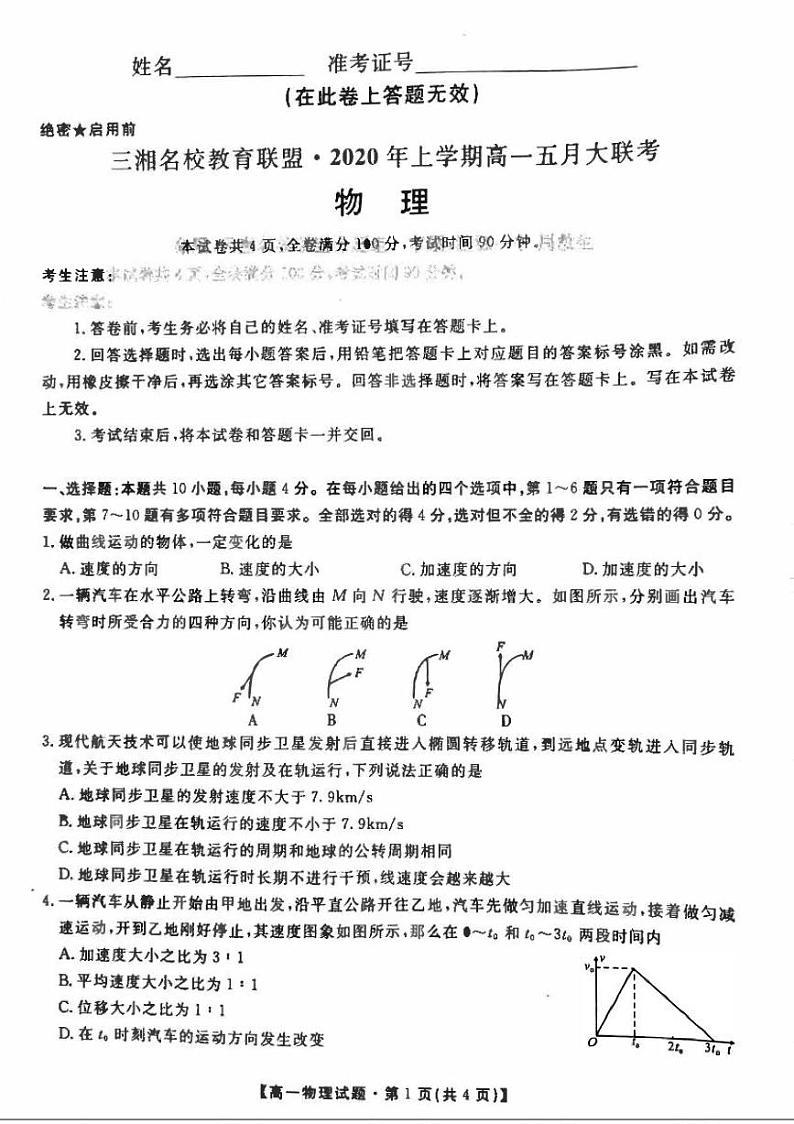 姓名____________ 准考证号____________________
(在此卷上答题无效)
绝密★启用前
三湘名校教育联盟·2020年上学期高一五月大联考
物 理
本试卷共4页,全卷满分100分,考试时间90分钟。
考生注意:
1.答卷前,考生务必将自己的姓名、准考证号填写在答题卡上。
2.回答选择题时,选出每小题答案后,用铅笔把答题卡上对应题目的答案标号涂黑。如需改
动,用橡皮擦干净后,再选涂其它答案标号。回答非选择题时,将答案写在答题卡上。写在本试卷
上无效。
3.考试结束后,将本试卷和答题卡一并交回。
一、选择题:本题共10小题,每小题4分。在每小题给出的四个选项中,第1~6题只有一项符合题目
要求,第7~10题有多项符合题目要求。全部选对的得4分,选对但不全的得2分,有选错的得0分。
1.做曲线运动的物体,一定变化的是
A.速度的方向 B.速度的大小 C.加速度的方向 D.加速度的大小
2.一辆汽车在水平公路上转弯,沿曲线由M向N行驶,速度逐渐增大。如图所示,分别画出汽车
转弯时所受合力的四种方向,你认为可能正确的是
M F N A
M F N B
M F N C
F M N D
3.现代航天技术可以使地球同步卫星发射后直接进入椭圆转移轨道,到远地点变轨进入同步轨
道,关于地球同步卫星的发射及在轨运行,下列说法正确的是
A.地球同步卫星的发射速度不大于7.9km/s
B.地球同步卫星在轨运行的速度不小于7.9km/s
C.地球同步卫星在轨运行的周期和地球的公转周期相同
D.地球同步卫星在轨运行时长期不进行干预,线速度会越来越大
4.一辆汽车从静止开始由甲地出发,沿平直公路开往乙地,汽车先做匀加速直线运动,接着做匀减
速运动,开到乙地刚好停止,其速度图象如图所示,那么在0~t₀和t₀~3t₀两段时间内
A.加速度大小之比为3∶1
B.平均速度大小之比为1∶1
C.位移大小之比为1∶1
D.在t₀时刻汽车的运动方向发生改变
v v₀ O t₀ 2t₀ 3t₀ t
【高一物理试题·第1页(共4页)】